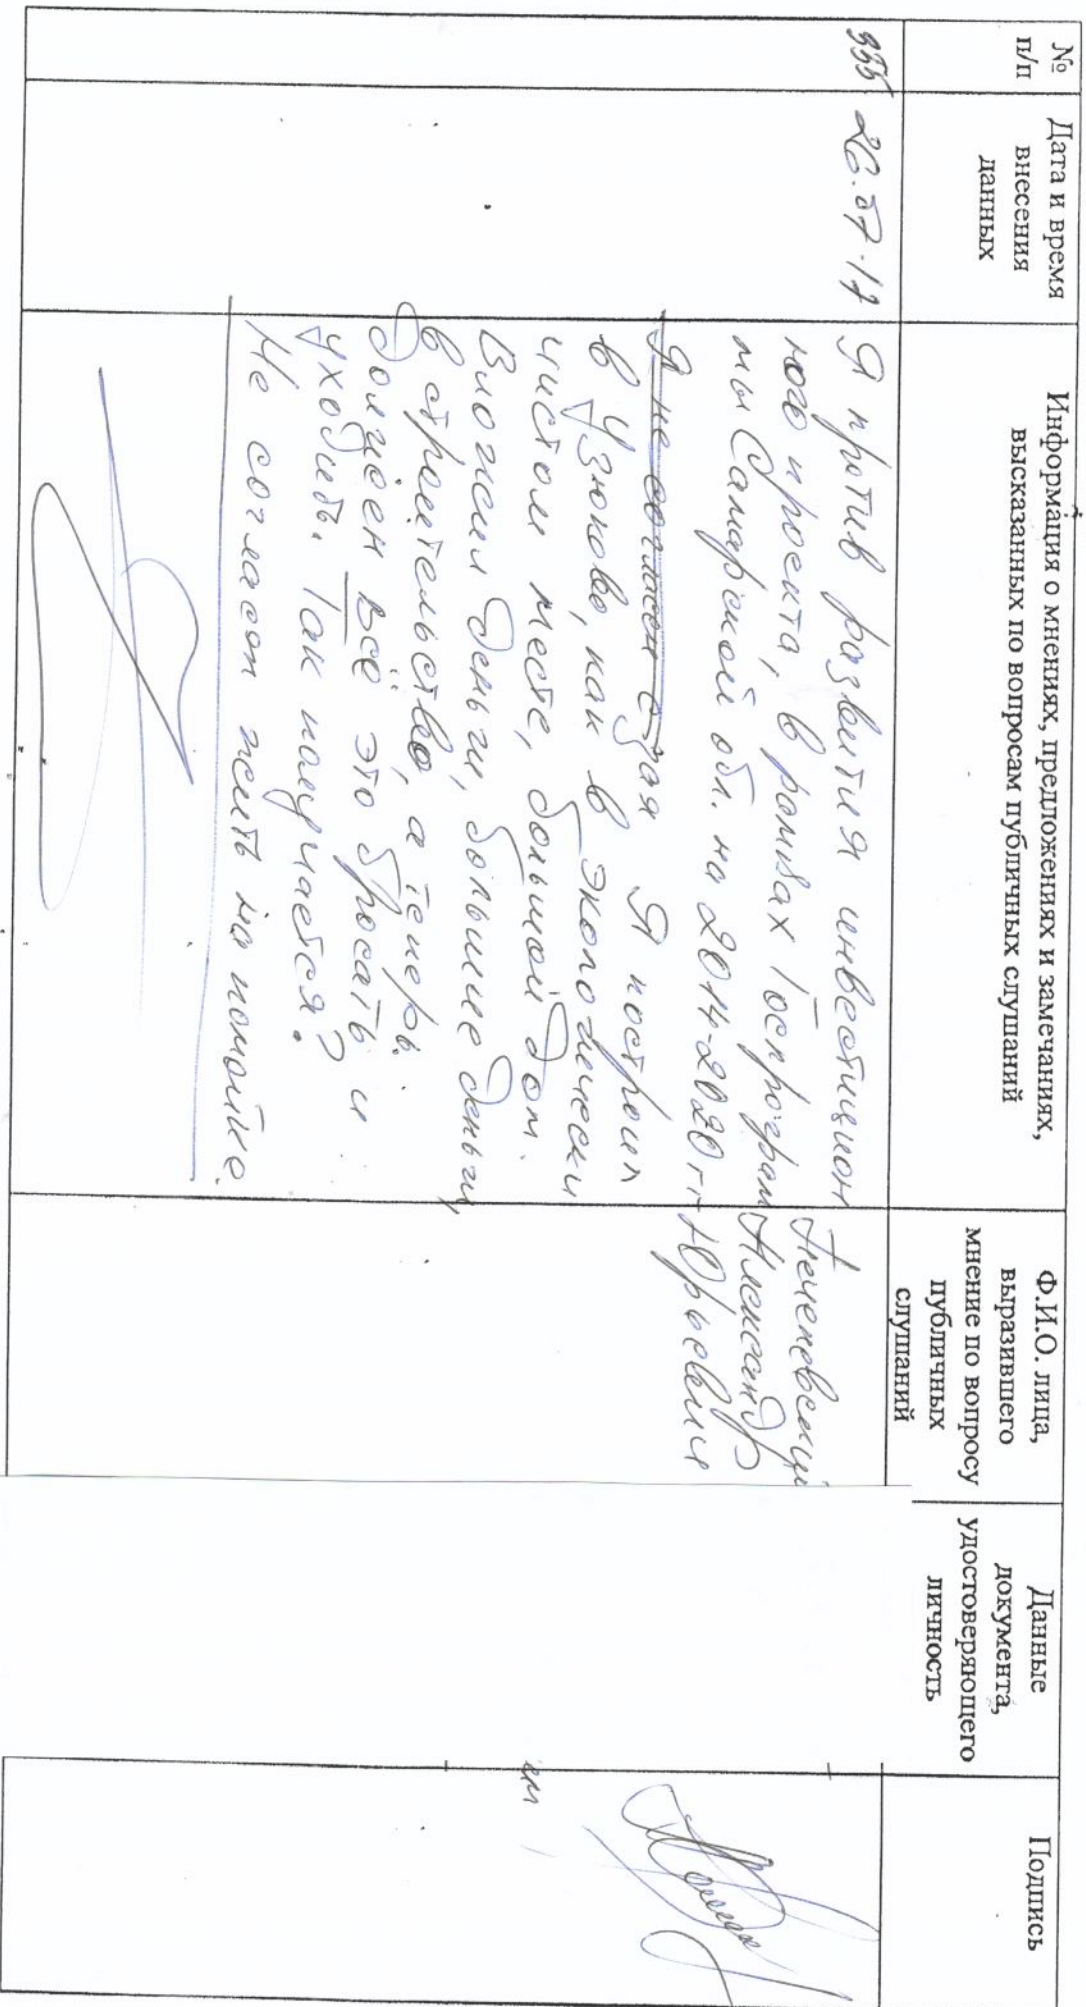 №
п/п
Дата и время
внесения
данных
Информация о мнениях, предложениях и замечаниях,
высказанных по вопросам публичных слушаний
Ф.И.О. лица,
выразившего
мнение по вопросу
публичных
слушаний
Данные
документа,
удостоверяющего
личность
Подпись
26.07.17
Я против развития инвестицион
ного проекта, в рамках Госпрограм
мы Самарской обл. на 2014-2020 гг
Я не согласен Я построил
в Узюково, как в экологически
чистом месте, большой дом.
Вложил деньги, большие деньги,
в строительство, а теперь
должен всё это бросать и
уходить. Так получается?
Не согласен жить на помойке.
Александр
Юрьевич